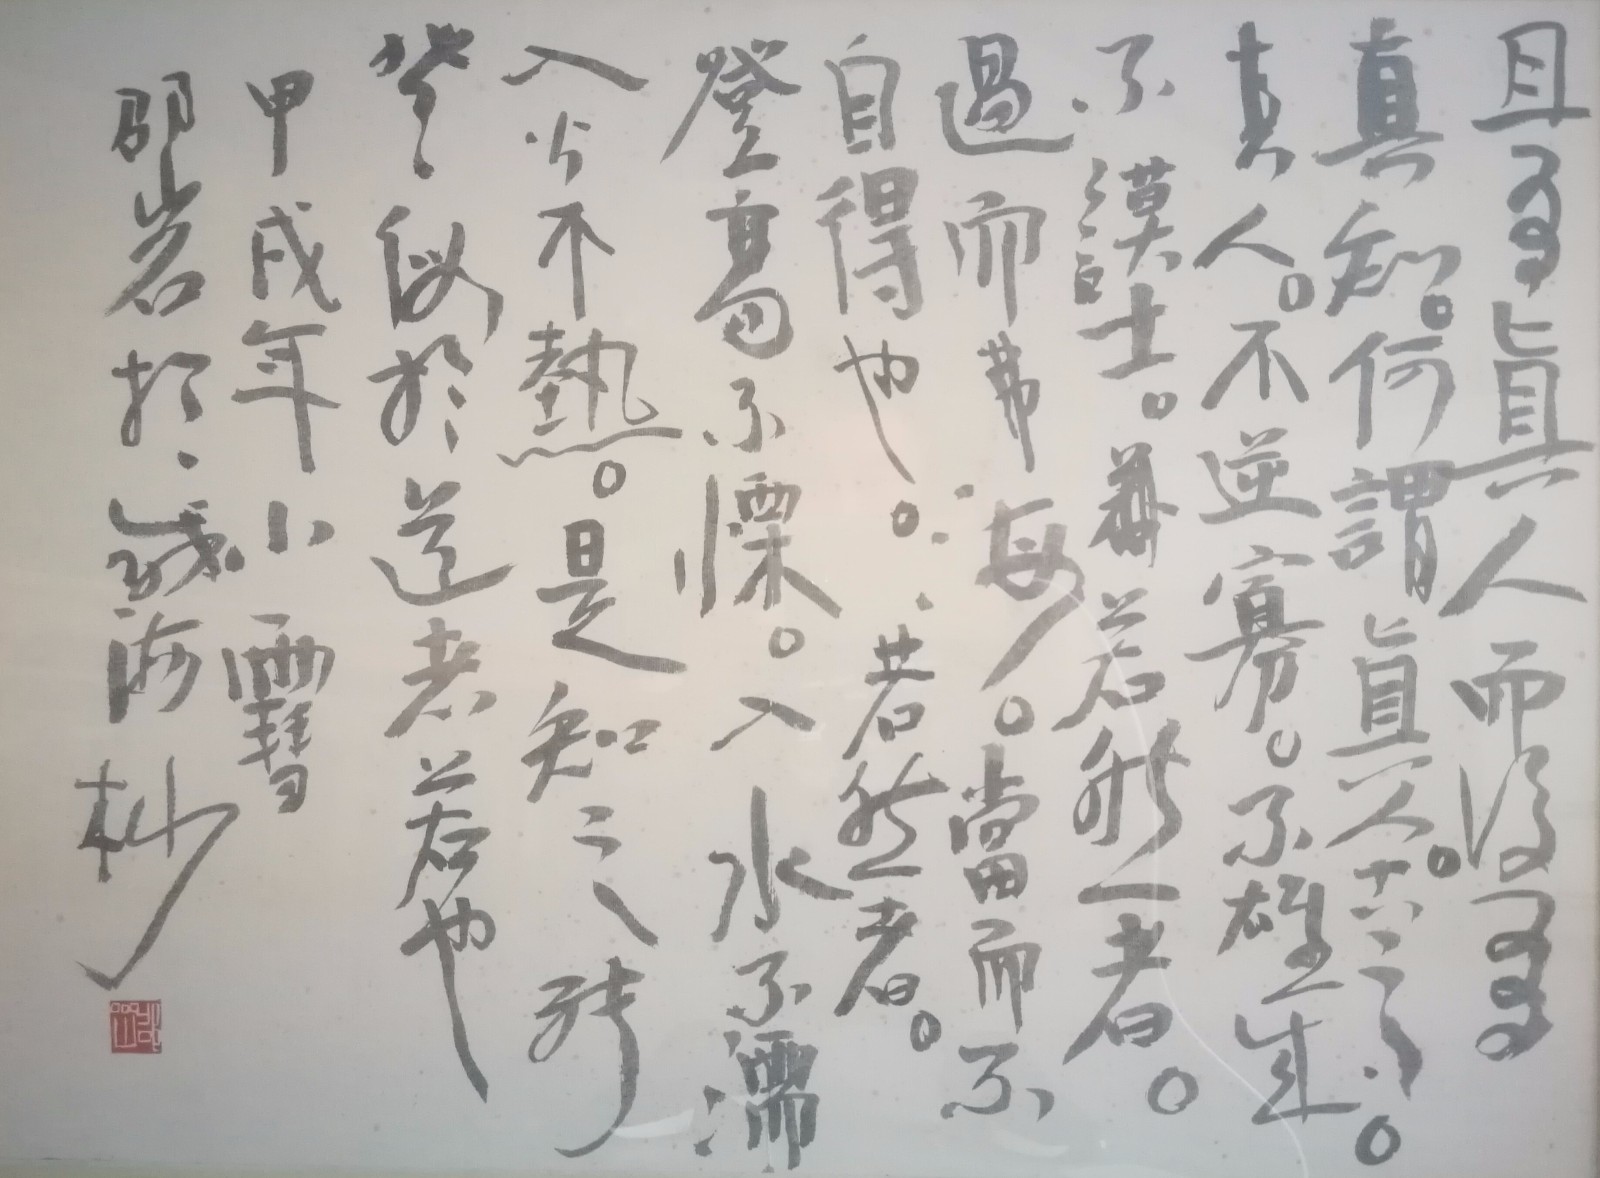 且有眞人而後有
真知。何謂眞人。古之。
真人。不逆寡。不雄成
不謨士。若然者。
過而弗悔。當而不
自得也。若然者。
登高不慄。入水不濡
入火不熱。是知之能
登假於道者若也
甲戌年小雪
邵岩於威海抄